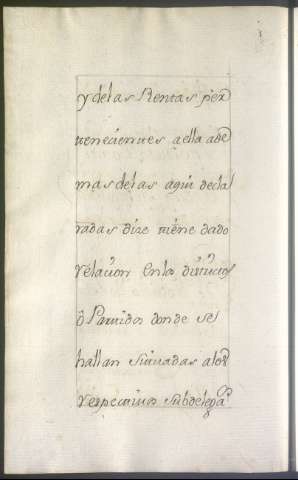 y delas Rentas per
tenecientes aella ade
mas delas aqui decla
radas dize tiene dado
relacion en los distritos
o Partidos donde se
hallan situadas alos
respectivos Subdeleg.os